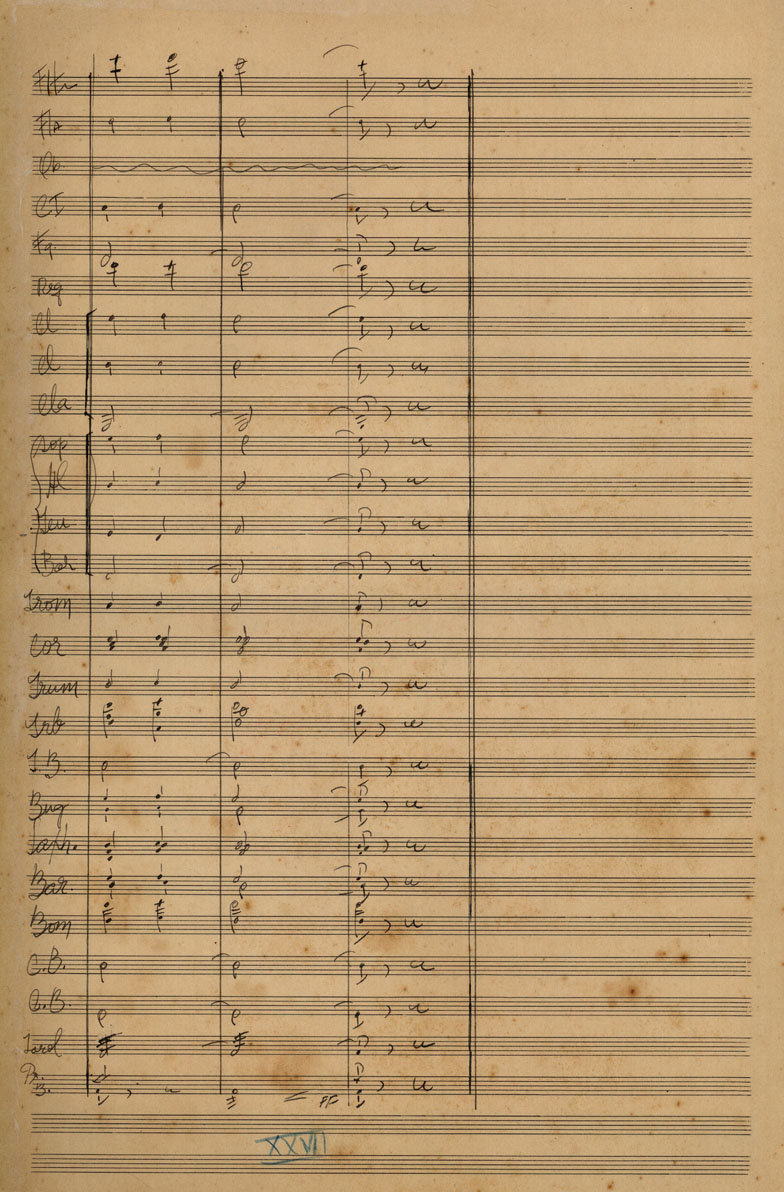 Fl
Ob.
Cl
Fg.
Req
Cl
Cl
Cla
Sop
Al
Ten
Bar
Trom
Cor
Trum
Trb
Bug
Saxh.
Bar.
Bom
C.B.
C.B.
Tarol
B. ff
XXVII